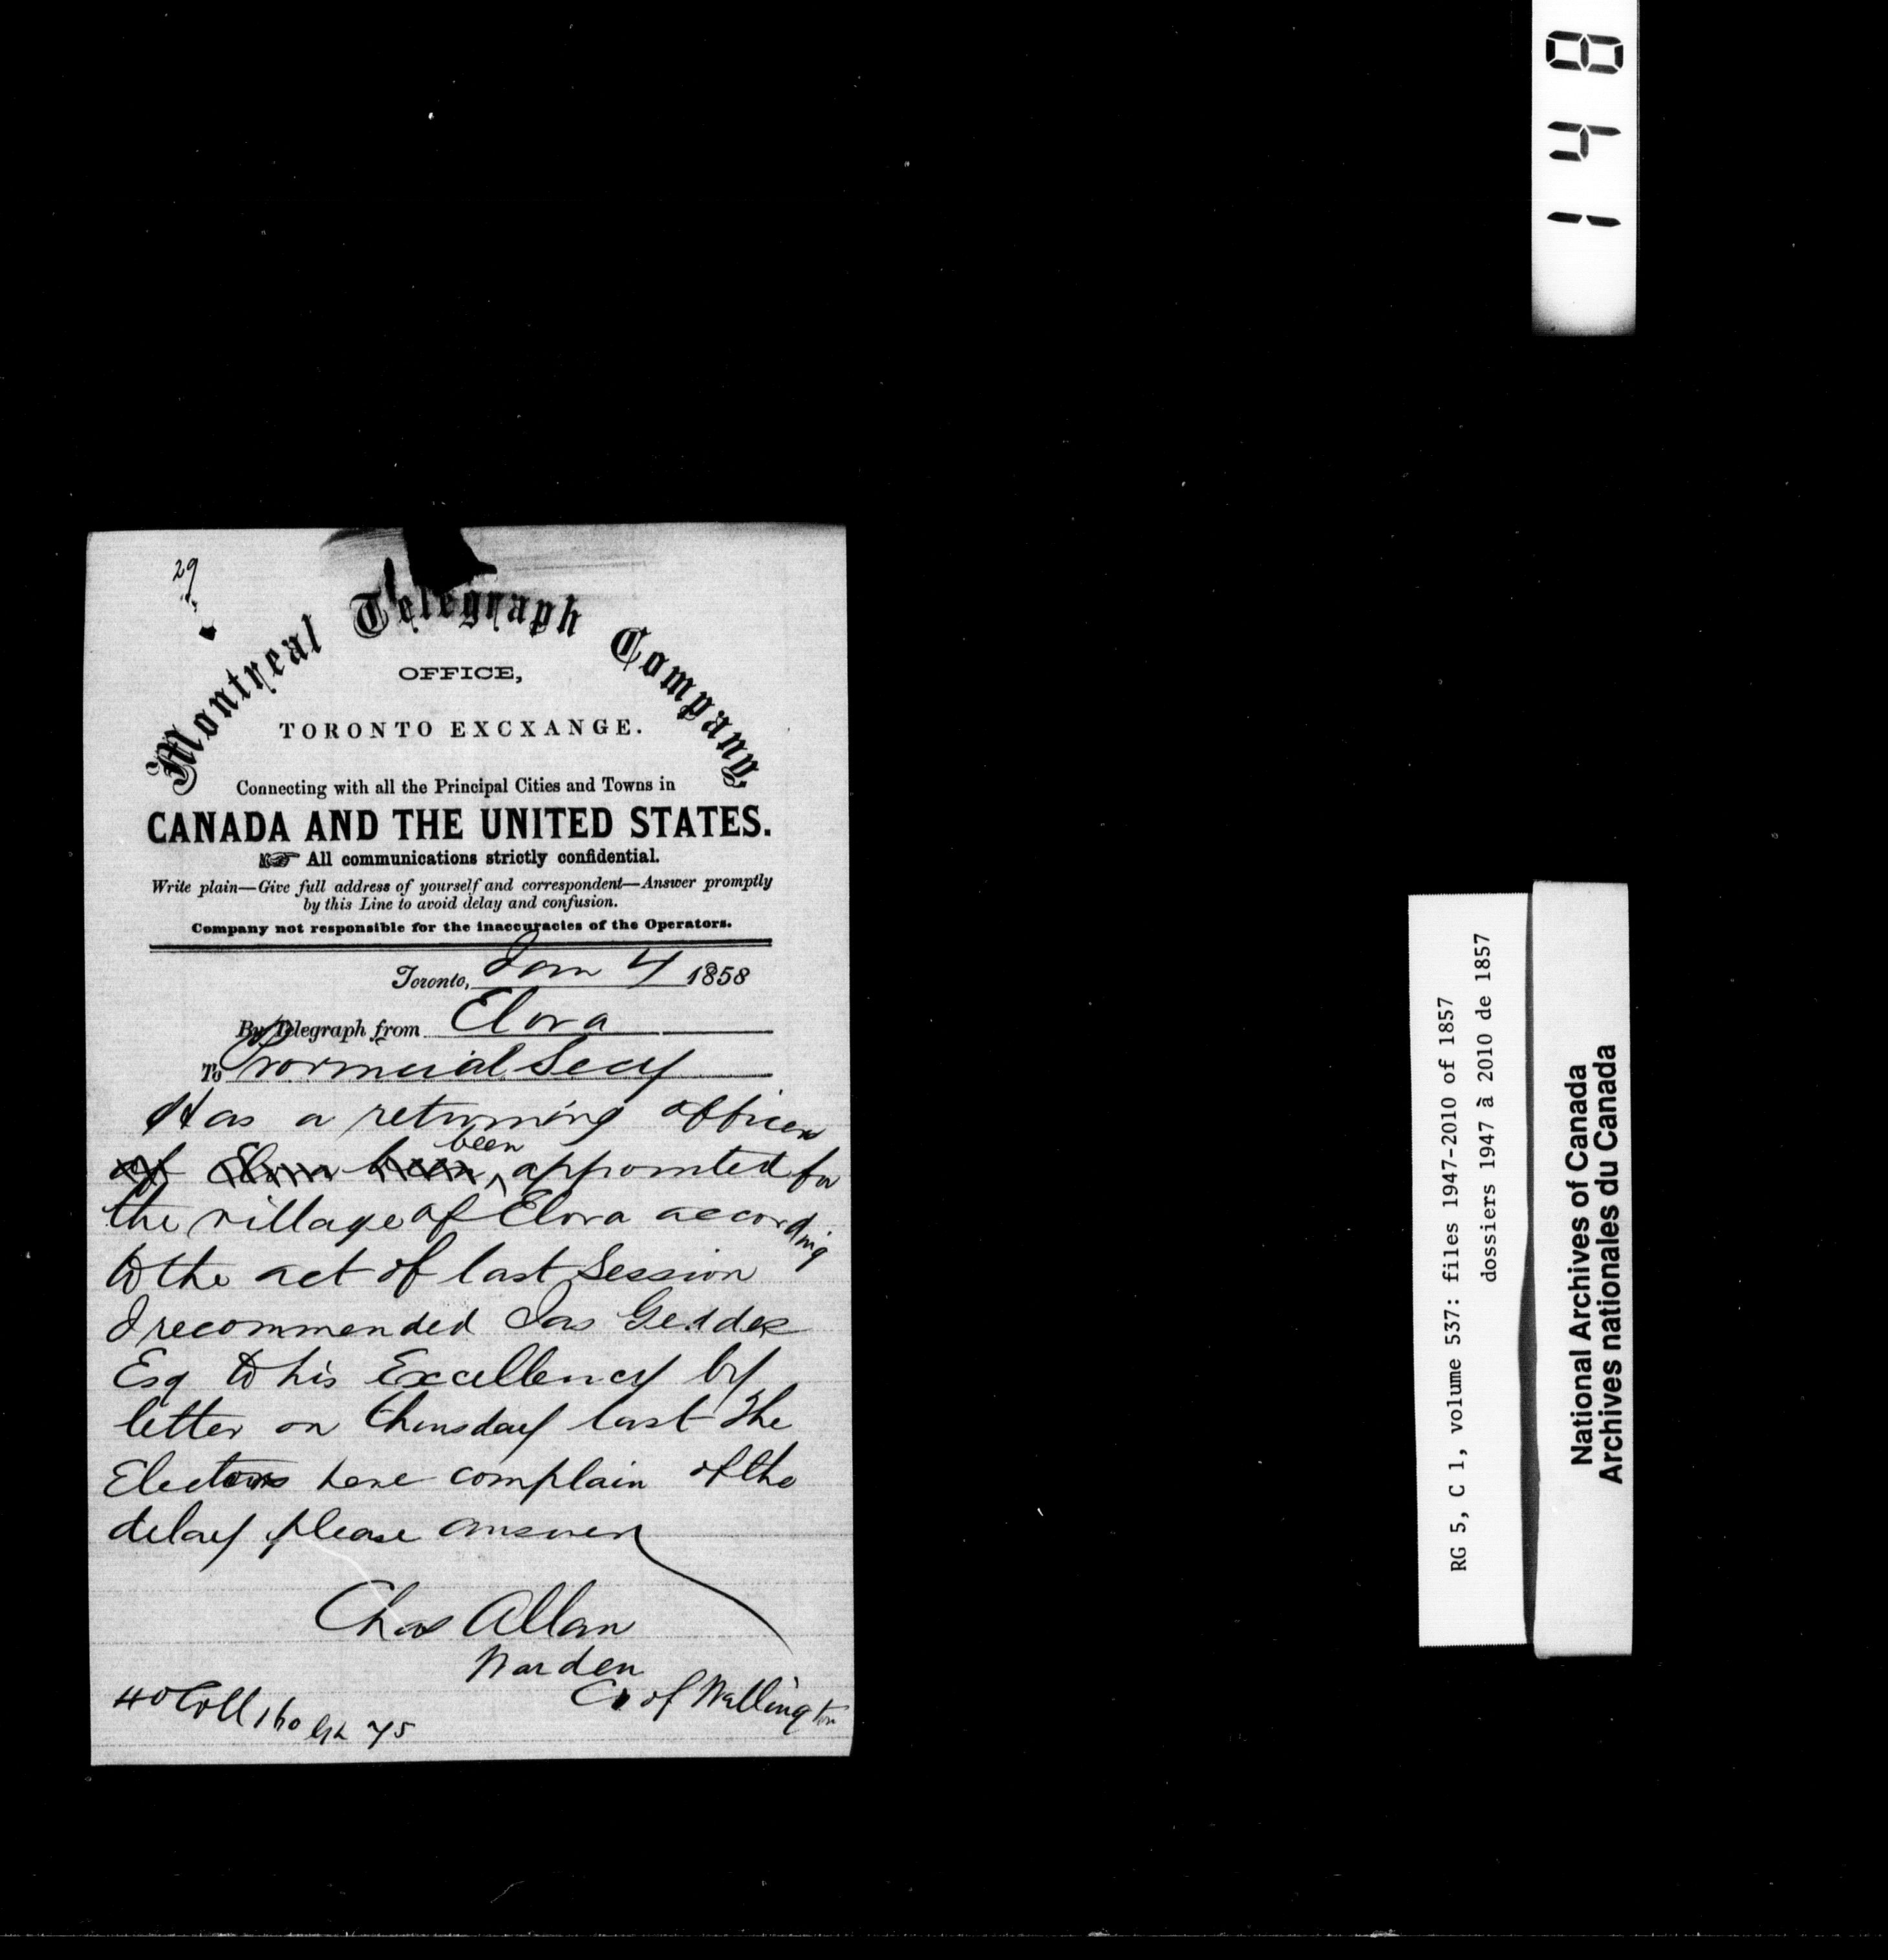 148
29
Montreal Telegraph Company
OFFICE,
TORONTO EXCXANGE.
Connecting with all the Principal Cities and Towns in
CANADA AND THE UNITED STATES.
☞ All communications strictly confidential.
Write plain—Give full address of yourself and correspondent—Answer promptly
by this Line to avoid delay and confusion.
Company not responsible for the inaccuracies of the Operators.
Toronto, Jan 4 1858
By Telegraph from Elora
To Provincial Secy
Has a returning officer
of Elora been been appointed for
the village of Elora according
to the act of last Session
I recommended Jas Geddes
Esq to his Excellency by
letter on thursday last The
Electors here complain of the
delay please answer
Chas Allan
Warden
Co of Wellington
40 Coll 160 75
RG 5, C 1, volume 537: files 1947-2010 of 1857
dossiers 1947 à 2010 de 1857
National Archives of Canada
Archives nationales du Canada